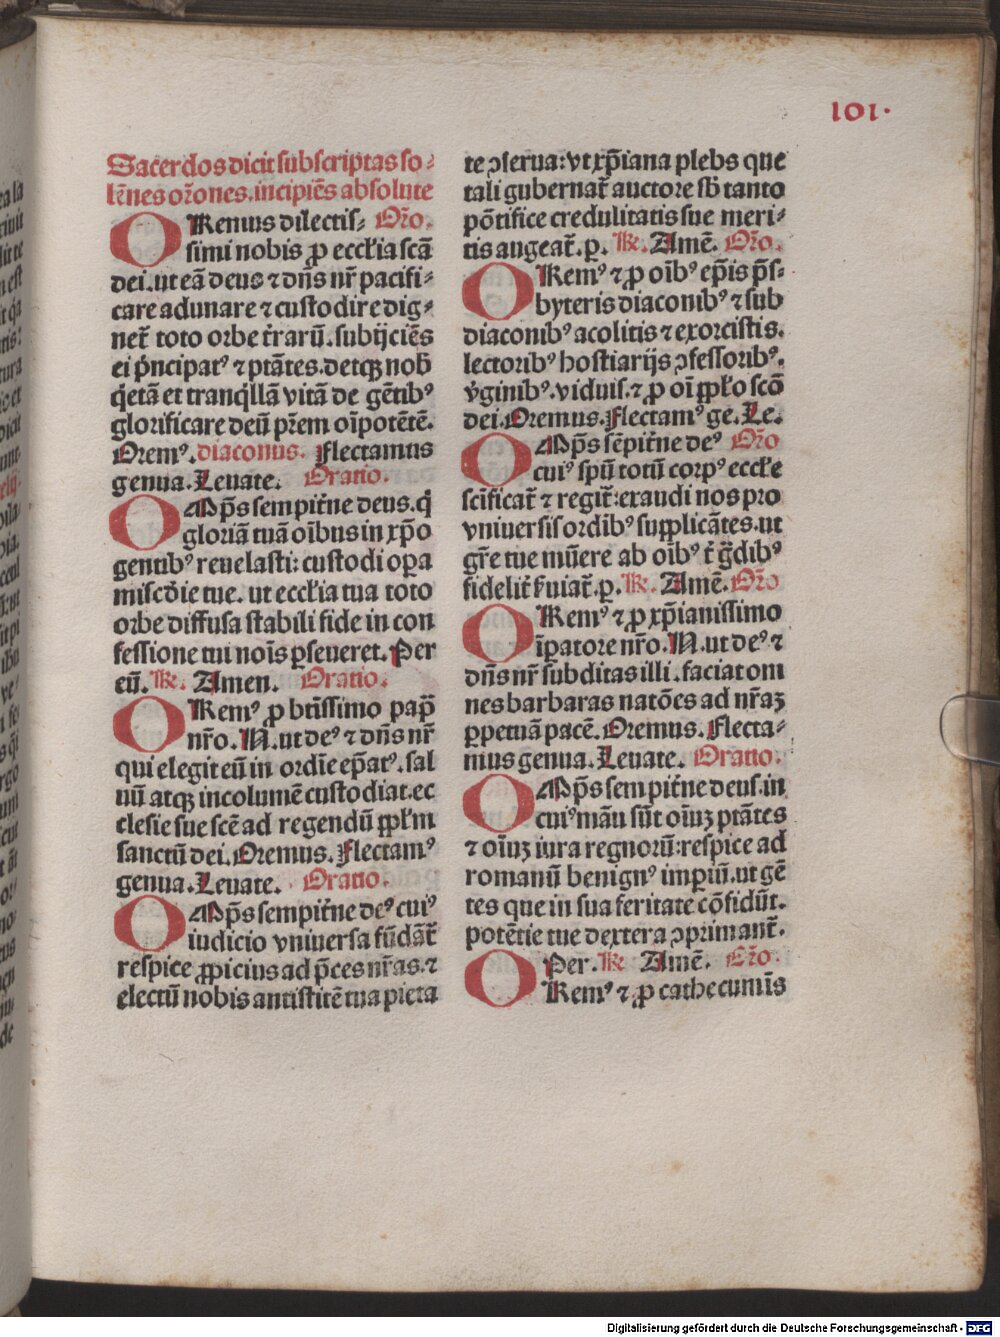 101.
Sacerdos dicit subscriptas so⸗
lēnes or̄ones. incipiēs absolute
ORemus dilectis⸗ Or̄o.
simi nobis ꝓ eccl'ia scā
dei. ut eā deus ⁊ dn̄s nr̄ pacifi⸗
care adunare ⁊ custodire dig⸗
net̄ toto orbe t̄rarū. subijciēs
ei p̄ncipatꝰ ⁊ ptātes. detqꝫ nob̄
q̇etā et tranq̇llā vitā de gētibꝰ
glorificare deū pr̄em oīpotētē.
Oremꝰ. diaconus. Flectamus
genua. Leuate. Oratio.
OMp̄s sempit̄ne deus. q̇
gloriā tuā oībus in xp̄o
gentibꝰ reuelasti: custodi oꝑa
misc̄die tue. ut eccl'ia tua toto
orbe diffusa stabili fide in con
fessione tui noīs ꝑseueret. Per
eū. ℟. Amen. Oratio.
ORemꝰ ꝓ btīssimo papa̅
nr̄o. N. ut deꝰ ⁊ dn̄s nr̄
qui elegit eū in ordīe ep̄atꝰ. sal
uū atqꝫ incolumē custodiat. ec
clesie sue scē ad regendū ꝓpl'm
sanctū dei. Oremus. Flectamꝰ
genua. Leuate. Oratio.
OMp̄s sempit̄ne deꝰ cuiꝰ
iudicio vniuersa fūdāt̄
respice ꝓpicius ad p̄ces nr̄as. ⁊
electū nobis antistitē tua pieta
te ↄserua: vt xp̄iana plebs que
tali gubernat̄ auctore sb̄ tanto
pōtifice credulitatis sue meri⸗
tis augeat̄. ꝑ. ℟. Amē. Or̄o.
ORemꝰ ⁊ ꝓ oībꝰ ep̄is p̄s⸗
byteris diaconibꝰ ⁊ sub
diaconibꝰ acolitis ⁊ exorcistis.
lectoribꝰ hostiarijs ↄfessoribꝰ.
v̇ginibꝰ. viduis. ⁊ ꝓ oī ꝓpl'o scō
dei. Oremus. Flectamꝰ ge. Le.
OMp̄s sēpit̄ne deꝰ Or̄o
cuiꝰ spū totū corpꝰ eccl'e
scīficat̄ ⁊ regit̄: exaudi nos pro
vniuersis ordībꝰ supplicātes. ut
gr̄e tue mūere ab oībꝰ t̄ gr̄dibꝰ
fidelit̄ s̄uiat̄. ꝑ. ℟. Amē. Or̄o
ORemꝰ ⁊ ꝓ xp̄ianissimo
īꝑatore nr̄o. N. ut deꝰ ⁊
dn̄s nr̄ subditas illi. faciat om
nes barbaras natōes ad nr̄aꝫ
ꝑpetuā pacē. Oremus. Flecta⸗
mus genua. Leuate. Oratio.
OMp̄s sempit̄ne deus. in
cuiꝰ māu sūt oīuꝫ ptātes
⁊ oīuꝫ iura regnorū: respice ad
romanū benignꝰ imꝑiū. ut gē
tes que in sua feritate cōfidūt.
potētie tue dextera ↄprimant̄.
Per. ℟ Amē. Or̄o.
ORemꝰ ⁊ ꝓ cathecumīs
Digitalisierung gefördert durch die Deutsche Forschungsgemeinschaft - DFG